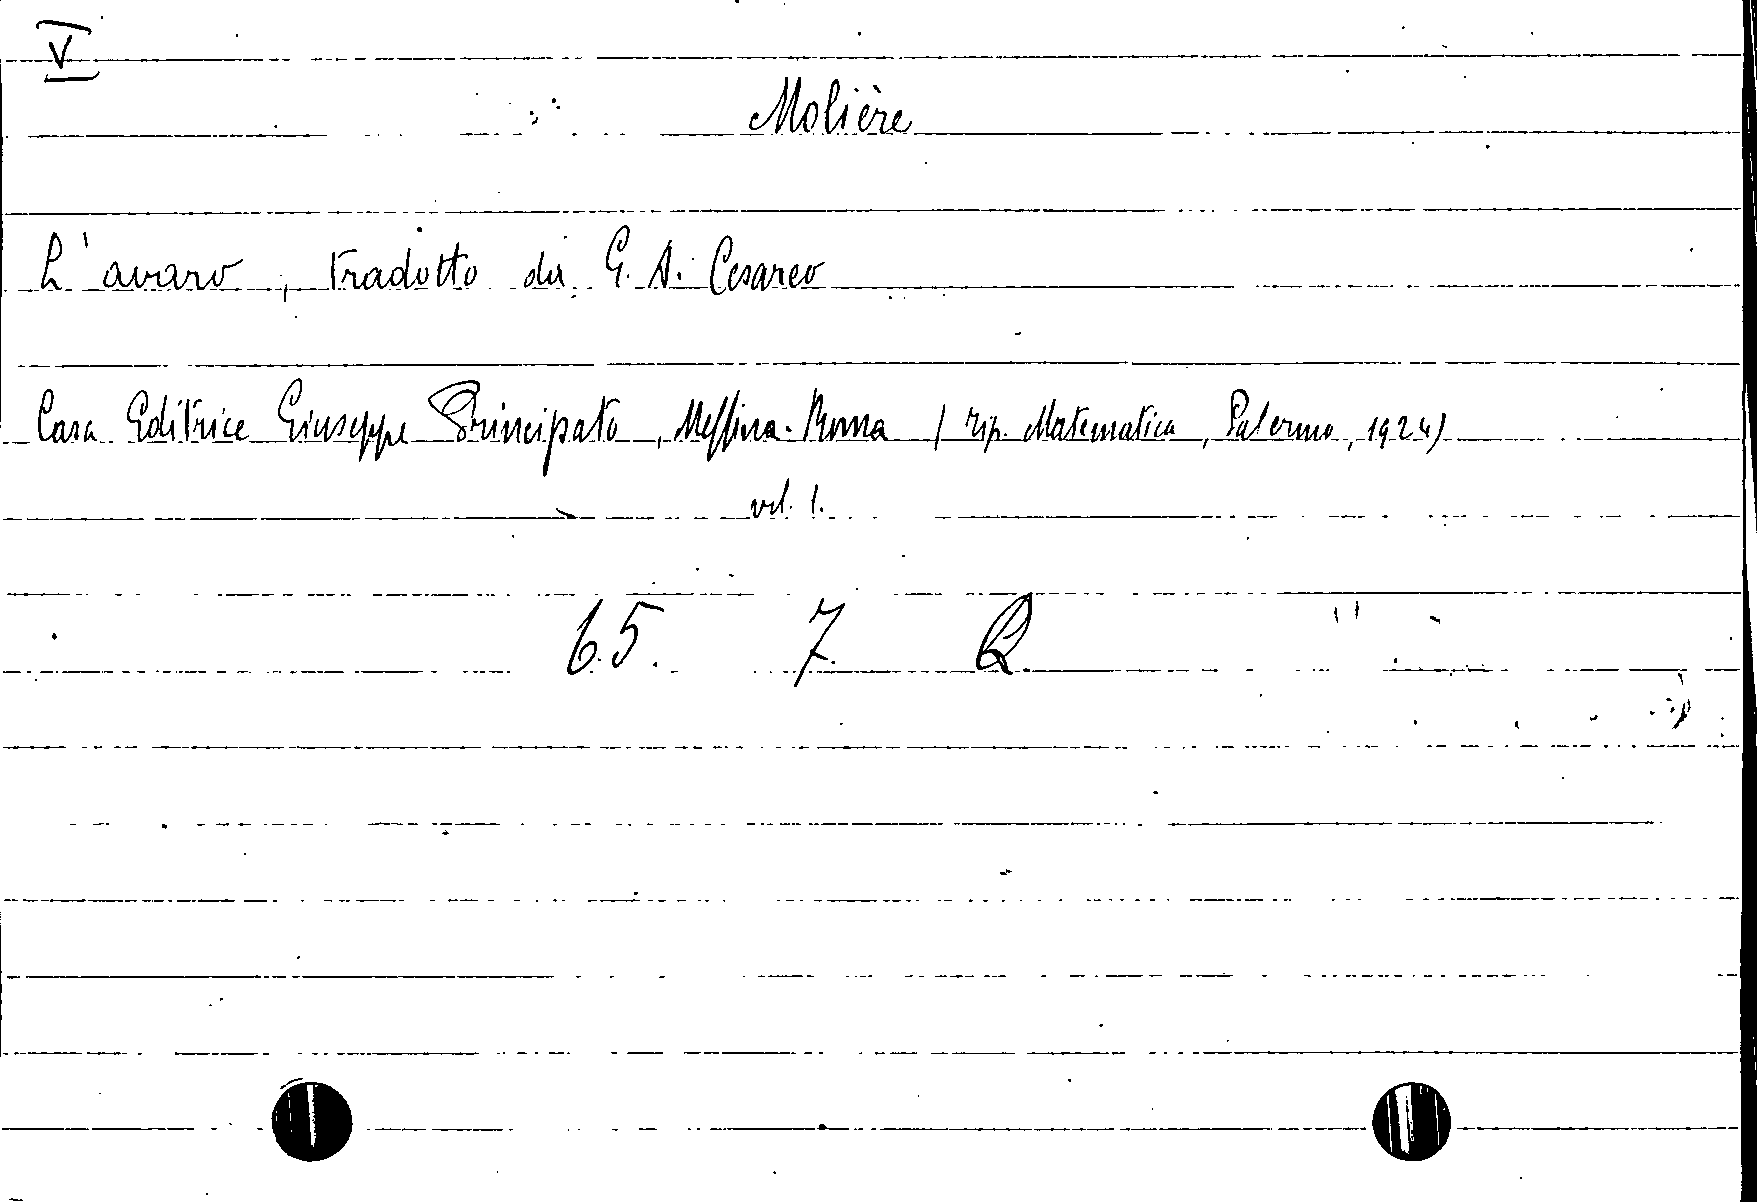 V
Molière
L'avaro, tradotto da G. A. Cesareo
Casa Editrice Giuseppe Principato, Messina-Roma (tip. Matematica, Palermo, 1924)
vol. 1.
65. 7. Q.